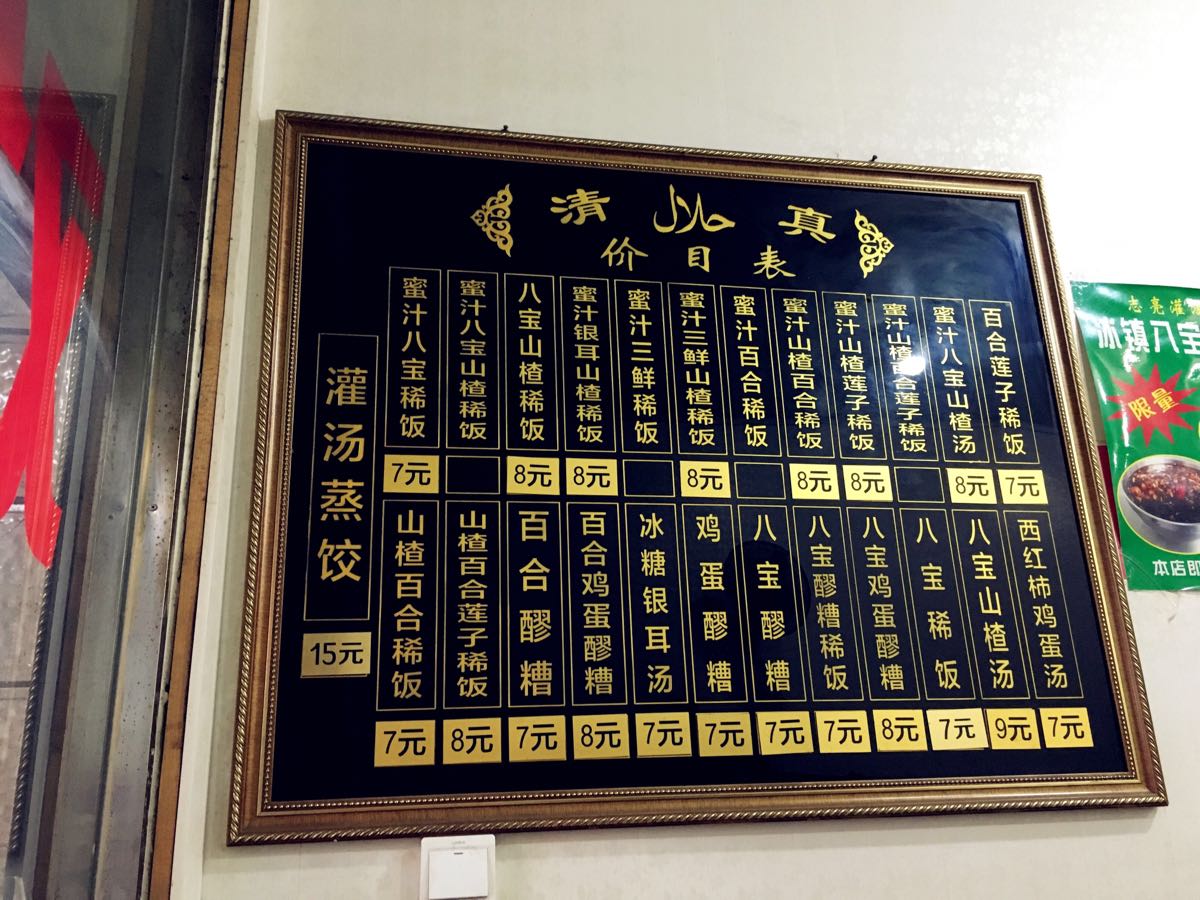 清 حلال 真
价目表
灌汤蒸饺
15元
蜜汁八宝稀饭
7元
蜜汁八宝山楂稀饭
八宝山楂稀饭
8元
蜜汁银耳山楂稀饭
8元
蜜汁三鲜稀饭
蜜汁三鲜山楂稀饭
8元
蜜汁百合稀饭
蜜汁山楂百合稀饭
8元
蜜汁山楂莲子稀饭
8元
蜜汁山楂百合莲子稀饭
蜜汁八宝山楂汤
8元
百合莲子稀饭
7元
山楂百合稀饭
7元
山楂百合莲子稀饭
8元
百合醪糟
7元
百合鸡蛋醪糟
8元
冰糖银耳汤
7元
鸡蛋醪糟
7元
八宝醪糟
7元
八宝醪糟稀饭
7元
八宝鸡蛋醪糟
8元
八宝稀饭
7元
八宝山楂汤
9元
西红柿鸡蛋汤
7元
志亮灌
冰镇八宝
限量
本店即